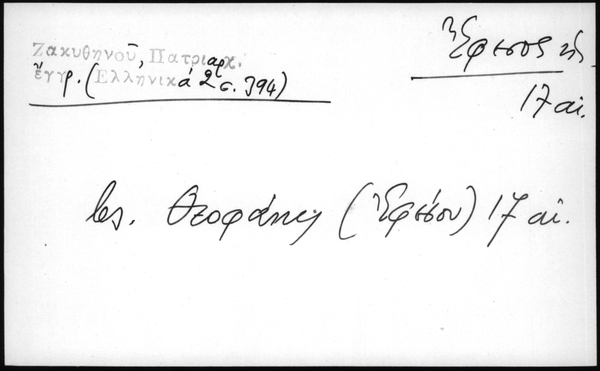 Ζακυθηνοῦ, Πατριαρχ.
ἔγγρ. (Ἑλληνικά 2 σ. 394)
Ἔφεσος
17 αἰ.
Θεοφάνης (Ἐφέσου) 17 αἰ.